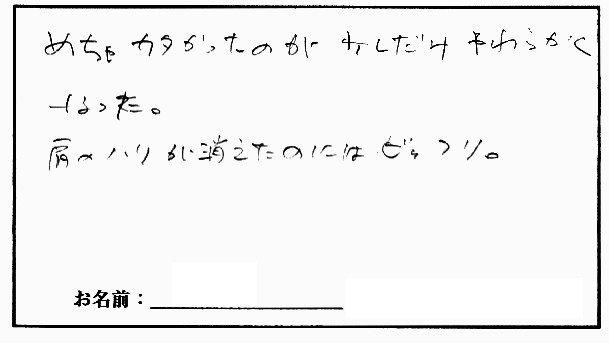 めちゃカタかったのが 少しだけ やわらかく
なった。
肩のハリが消えたのにはびっくり。
お名前：